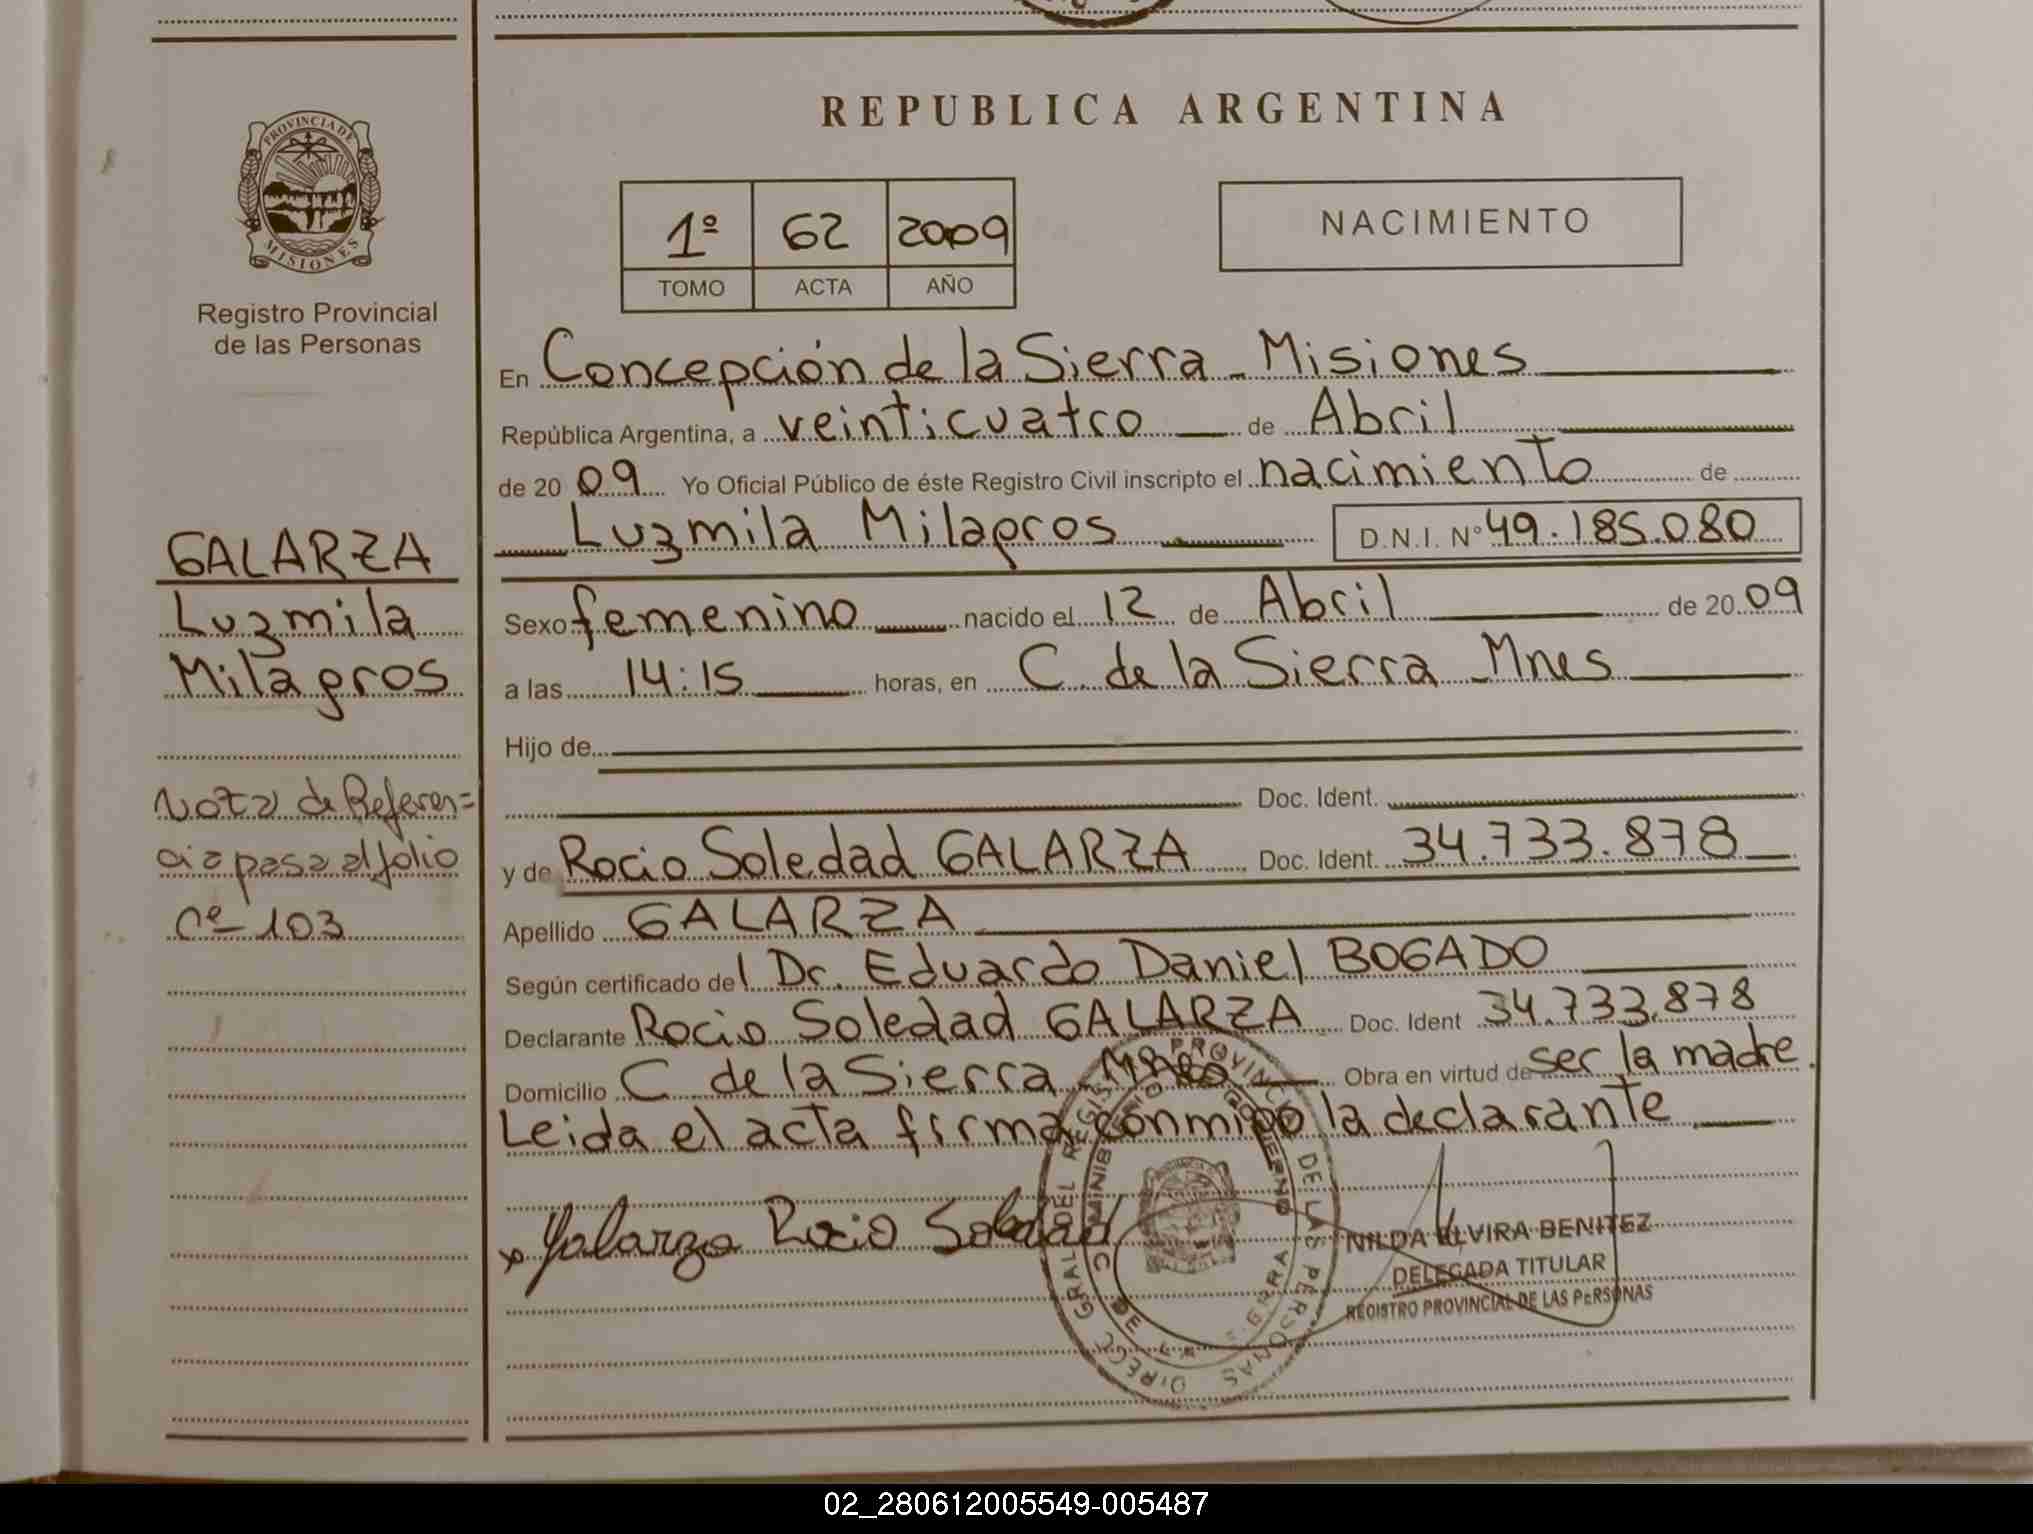 REPUBLICA ARGENTINA
PROVINCIA DE
MISIONES
Registro Provincial
de las Personas
1º 62 2009
TOMO ACTA AÑO
NACIMIENTO
En Concepción de la Sierra - Misiones
República Argentina, a veinticuatro de Abril
de 20 09 Yo Oficial Público de éste Registro Civil inscripto el nacimiento de
Luzmila Milagros D.N.I. Nº 49.185.080
GALARZA
Luzmila
Milagros
Sexo femenino nacido el 12 de Abril de 20 09
a las 14:15 horas, en C. de la Sierra - Mnes
Hijo de
Doc. Ident.
Nota de Referen=
cia pasa al folio
nº 103
y de Rocio Soledad GALARZA Doc. Ident. 34.733.878
Apellido GALARZA
Según certificado del Dr. Eduardo Daniel BOGADO
Declarante Rocio Soledad GALARZA Doc. Ident 34.733.878
Domicilio C. de la Sierra - Mnes Obra en virtud de ser la madre.
Leida el acta firma conmigo la declarante
Galarza Rocio Soledad
DIRECC GRAL DEL REGIST PROVINCIAL DE LAS PERSONAS
GOBIERNO
NILDA ELVIRA BENITEZ
DELEGADA TITULAR
REGISTRO PROVINCIAL DE LAS PERSONAS
02_280612005549-005487